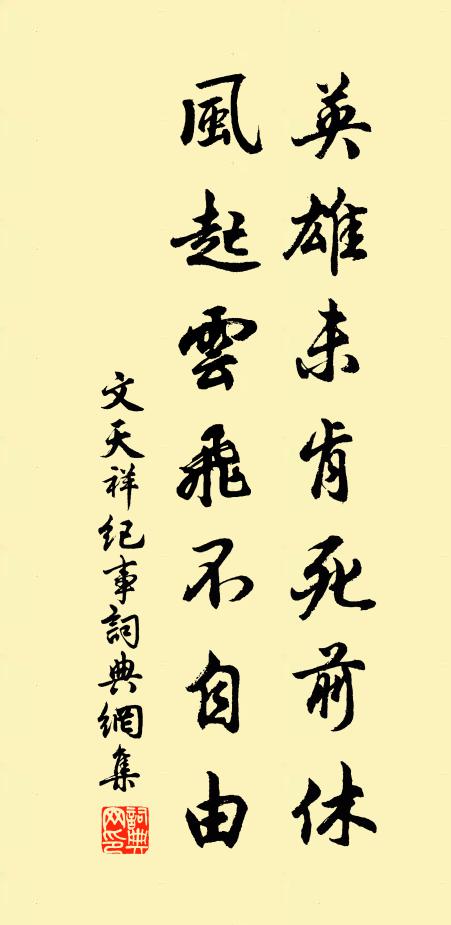 英雄未肯死前休
風起雲飛不自由
文天祥紀事詞典網集
詞典網印